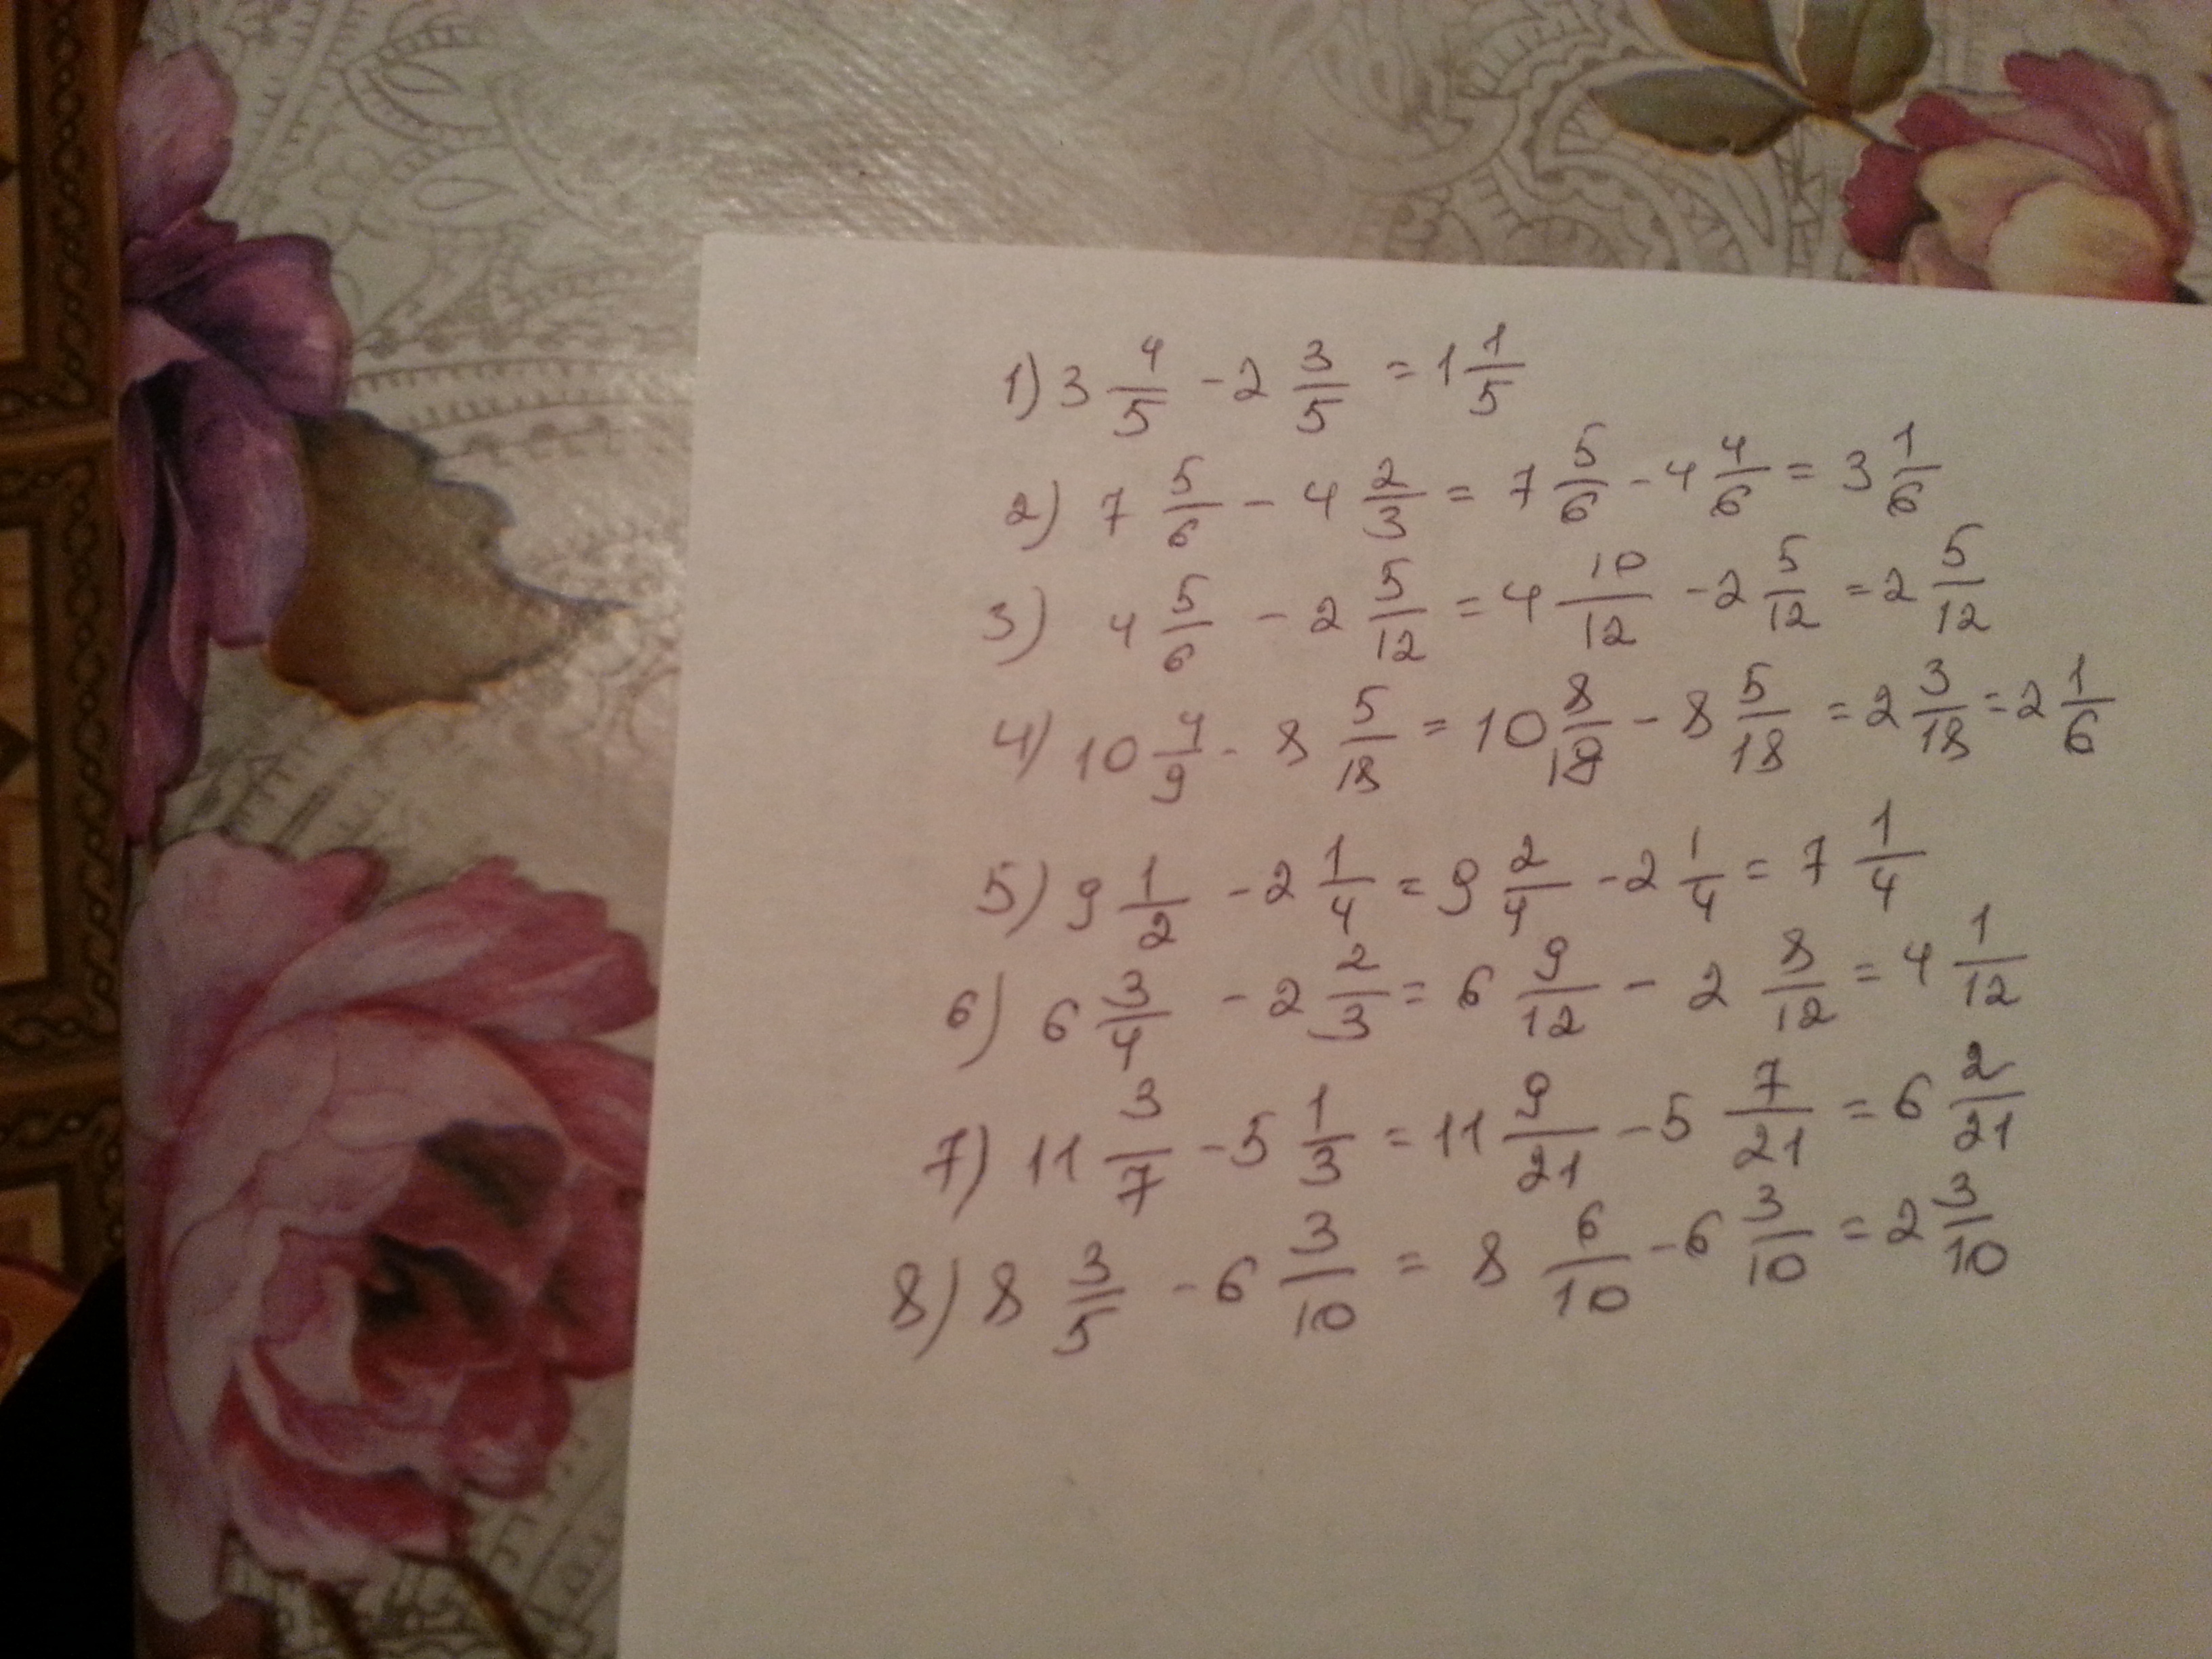 1) 3 4/5 - 2 3/5 = 1 1/5
2) 7 5/6 - 4 2/3 = 7 5/6 - 4 4/6 = 3 1/6
3) 4 5/6 - 2 5/12 = 4 10/12 - 2 5/12 = 2 5/12
4) 10 4/9 - 8 5/18 = 10 8/18 - 8 5/18 = 2 3/18 = 2 1/6
5) 9 1/2 - 2 1/4 = 9 2/4 - 2 1/4 = 7 1/4
6) 6 3/4 - 2 2/3 = 6 9/12 - 2 8/12 = 4 1/12
7) 11 3/7 - 5 1/3 = 11 9/21 - 5 7/21 = 6 2/21
8) 8 3/5 - 6 3/10 = 8 6/10 - 6 3/10 = 2 3/10